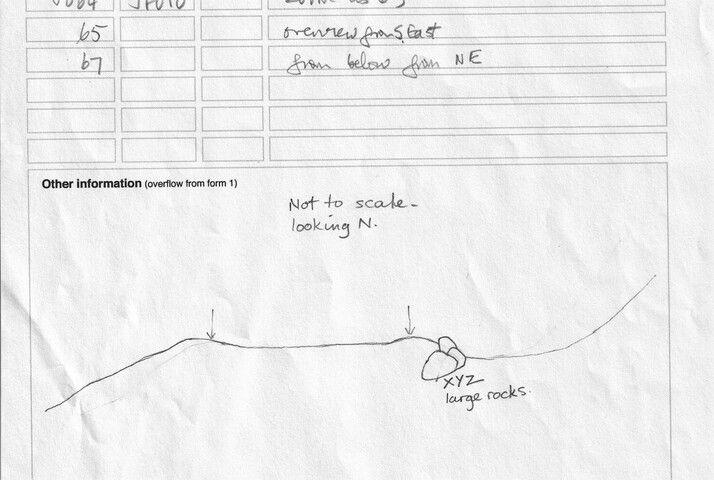 65 overview from S. East
67 from below from NE
Other information (overflow from form 1)
Not to scale.
looking N.
XYZ
large rocks.